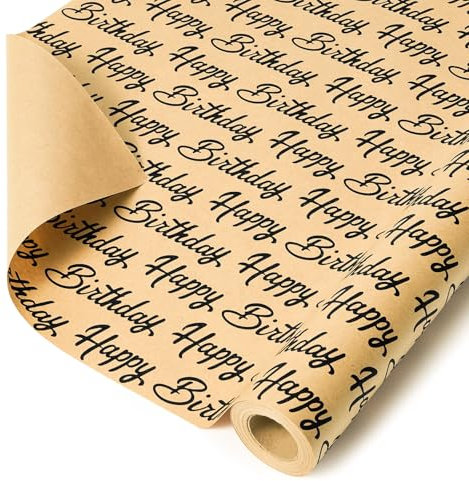 Happy Birthday
Happy Birthday Happy
Happy Birthday Happy Birthday
Birthday Happy Birthday Happy
Happy Birthday Happy Birthday
Birthday Happy Birthday Happy
Happy Birthday Happy Birthday
Birthday Happy Birthday Happy
Happy Birthday Happy